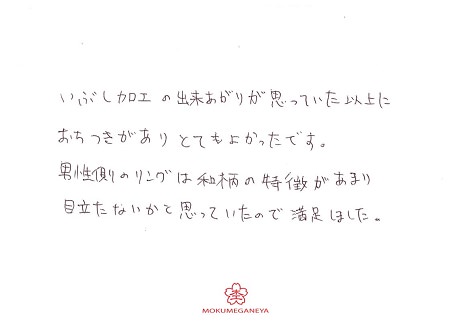 いぶし加工の出来あがりが思っていた以上に
おちつきがありとてもよかったです。
男性側のリングは和柄の特徴があまり
目立たないかと思っていたので満足しました。
MOKUMEGANEYA